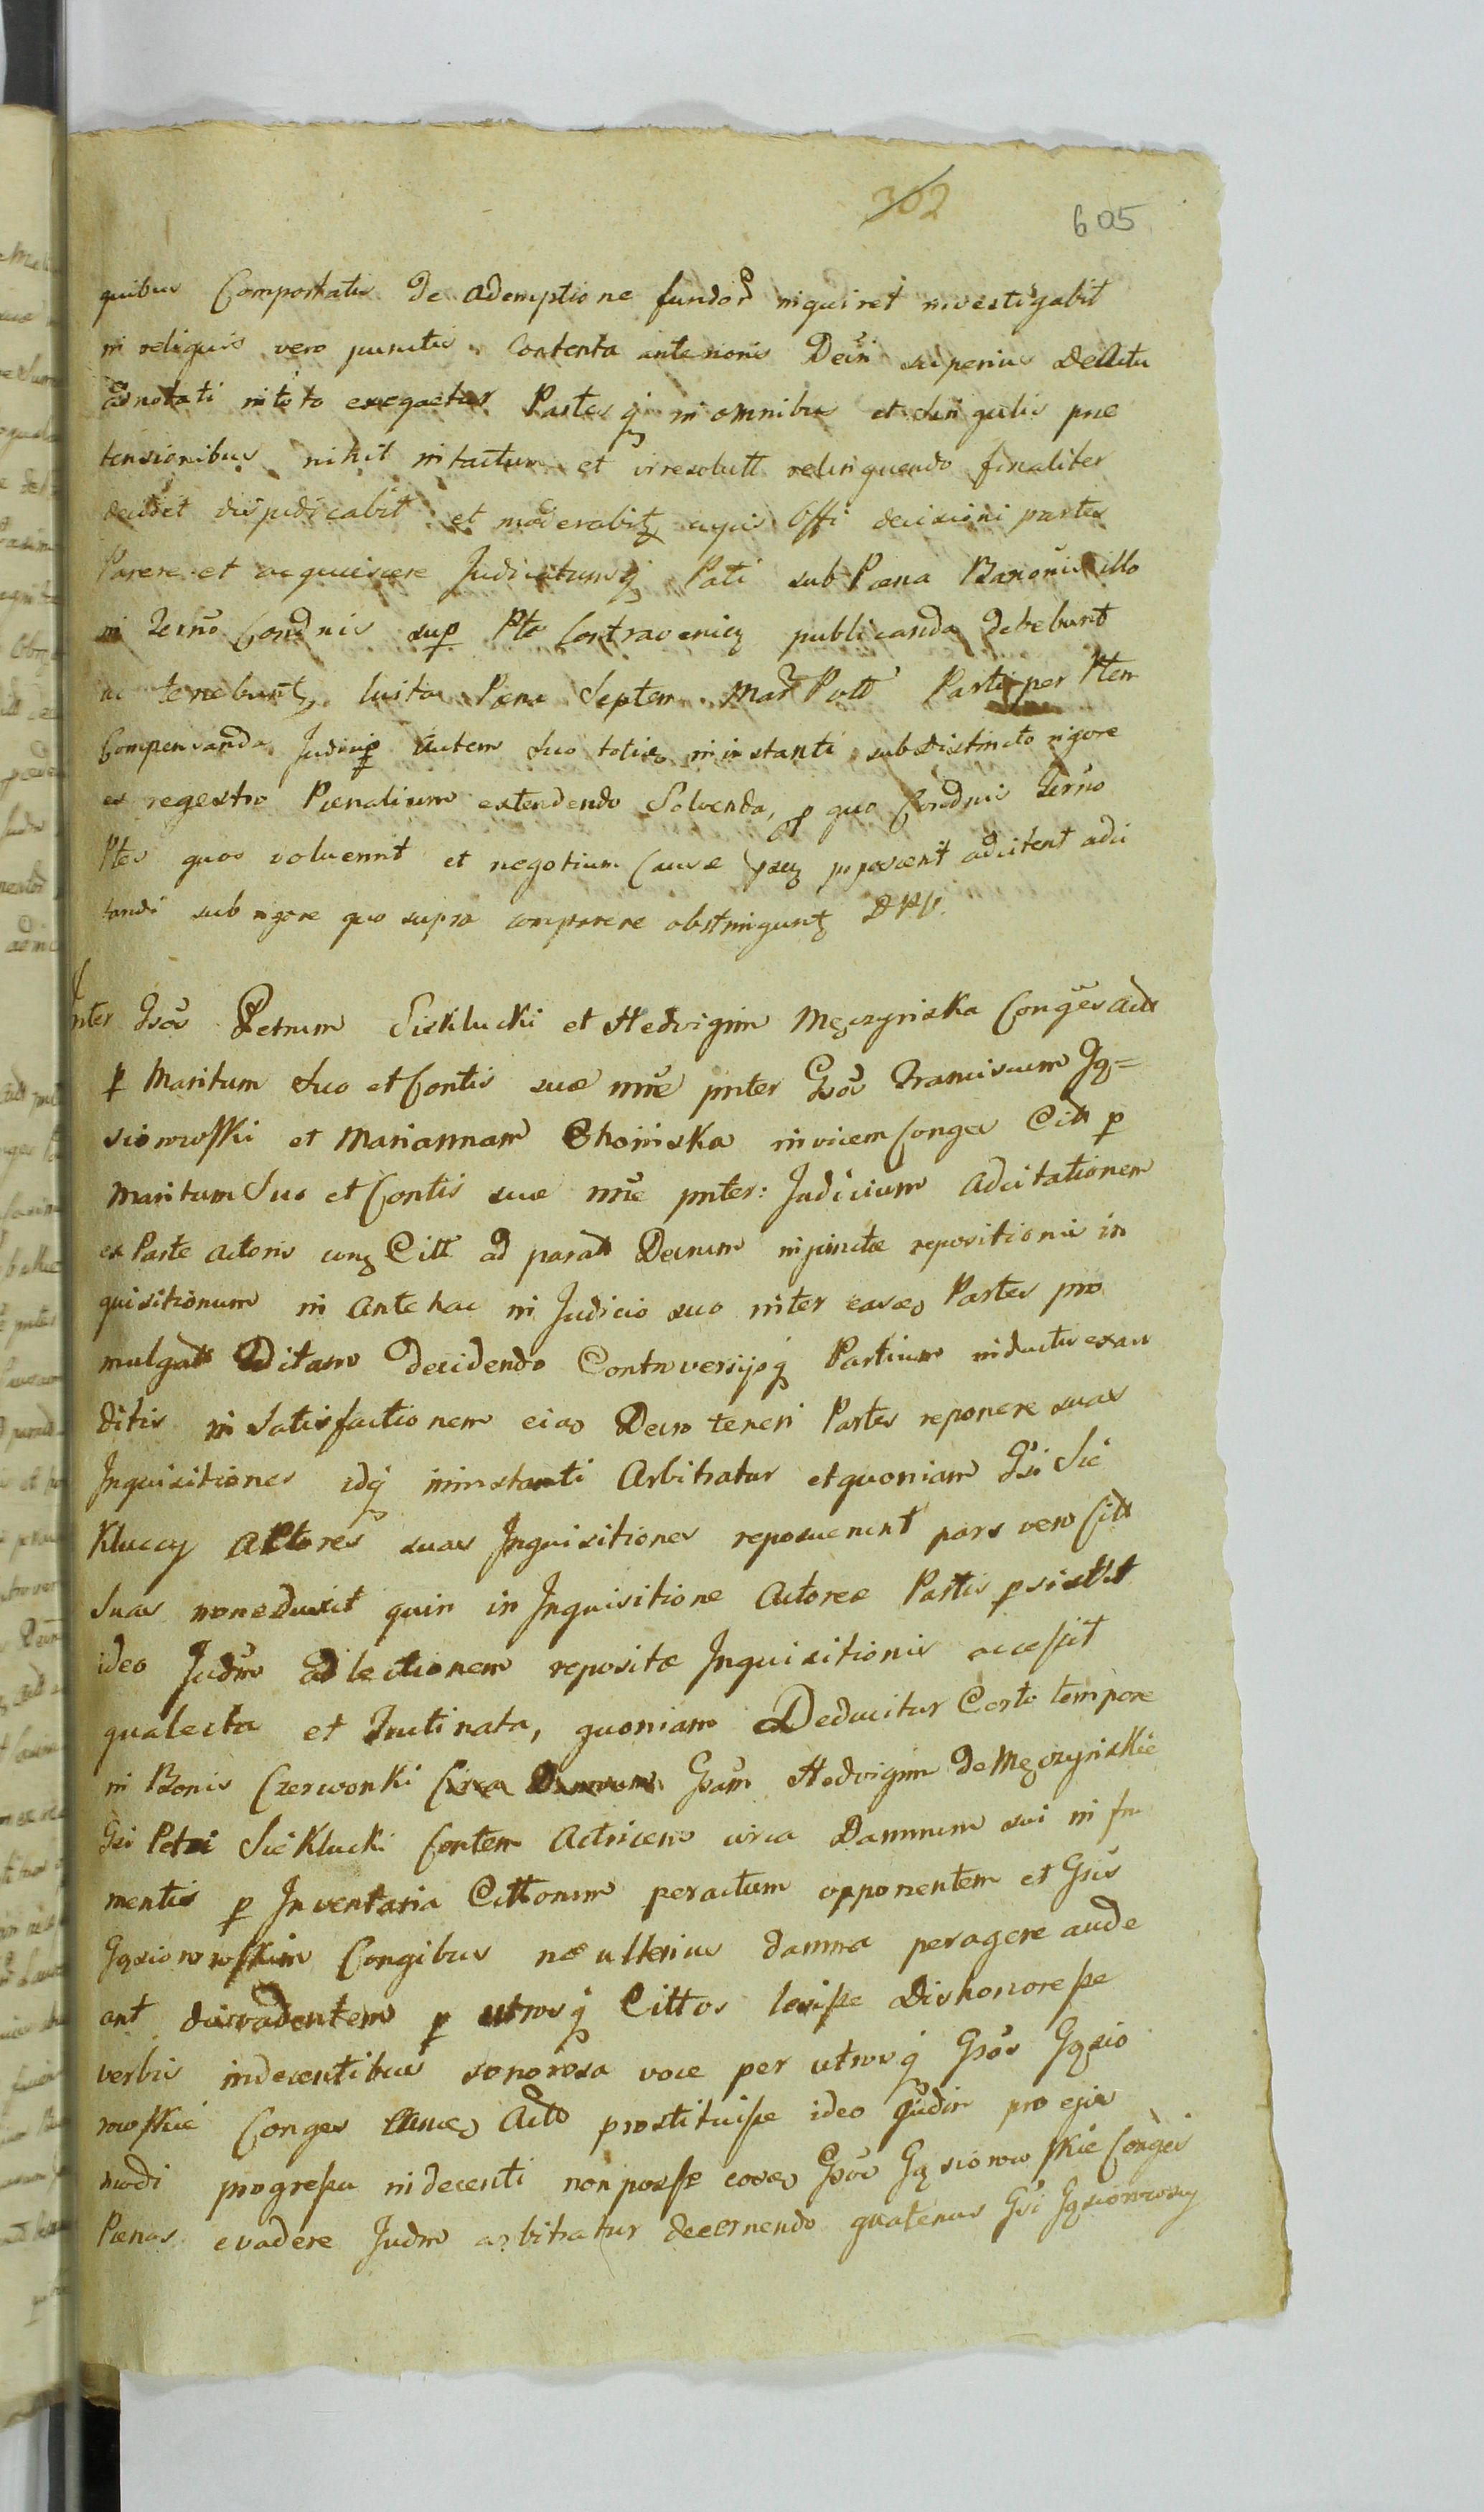 302
605
quibus Comportatis de ademptione fundor inquiret investigabit
in reliquis vero punctis Contenta anterioris Decri superius de Actu
adnotati in toto exequetur Partes q in omnibus et singulis prae
tensionibus nihil intactum et irresolutt relinquendo finaliter
decidet dijudicabit et moderabitz cujus Offi decisioni partes
Parere et acquiescere Judicatumq Pati sub Paena Banonis illo
in Terno Condnis sup Pte Contraveniez publicanda debebunt
ac tenebuntz luita Paena Septem Mar Poll Parti per Ptem
Compensanda Judicio autem suo toties in instanti sub distincto rigore
ex regestro Paenalium extendendo Solvenda, p quo Condnis Terno
Ptes quos voluerint et negotium Causae poposcerit adcitent adci
tandi sub rigore quo supra comparere obstringuntz DPV.
Inter Gsos Petrum Sieklucki et Hedvigim Męczynska Conges Actt
p Maritum Suo et Contis suae nne pnter Gsos Franciscum Gą=
siorowski et Mariannam Choinska invicem Conges Citt p
Maritum Suo et Contis suae nne pnter: Judicium Adcitationem
ex Parte Actoris conz Citt ad paratt Decrum injunctae repositionis in
quisitionum in antehac in Judicio suo inter easdo Partes pro
mulgatt Editam decidendo Controversijsq Partium inductis exau
ditis in Satisfactionem ejus Decro teneri Partes reponere suas
Inquisitiones idq in instanti Arbitratur et quoniam Gsi Sie
Kluccy Actores suas Inquisitiones reposuerint pars vero Citt
Suas non eduxit quin in Inquisitione Actoreae Partis psistit
ideo Judm ad lectionem repositae Inquisitionis accessit
qua lecta et Trutinata, quoniam Deducitur Certo tempore
in Bonis Czerwonki Circa Damnum Gsam Hedvigim de Męczynskie
Gsi Petri Sieklucki Contem Actricem circa Damnum sui in fru
mentis p Inventaria Cittorum peractum opponentem et Gsis
Gąsiorowskim Congibus ne ulterius damna peragere aude
ant dissuadentem p utrosq Cittos laesisse Dishonorasse
verbis indecentibus sonorosa voce per utrosq Gsos Gąsio
rowskie Conges Actt prostituisse ideo Judm pro ejus
modi progressu indecenti non posse eosdo Gsos Gąsiorowskie Conges
Paenas evadere Judm arbitratur decernendo quatenus Gsi Gąsiorowscy